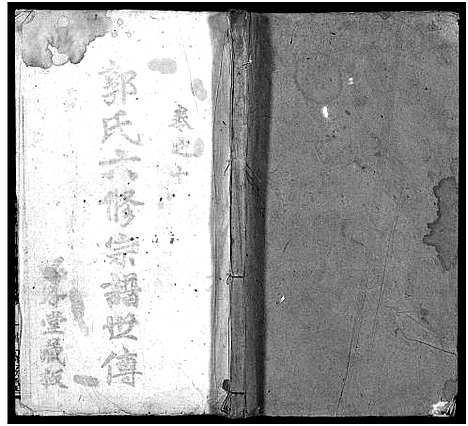 卷之十
郭氏六修宗譜世傳
堂藏板